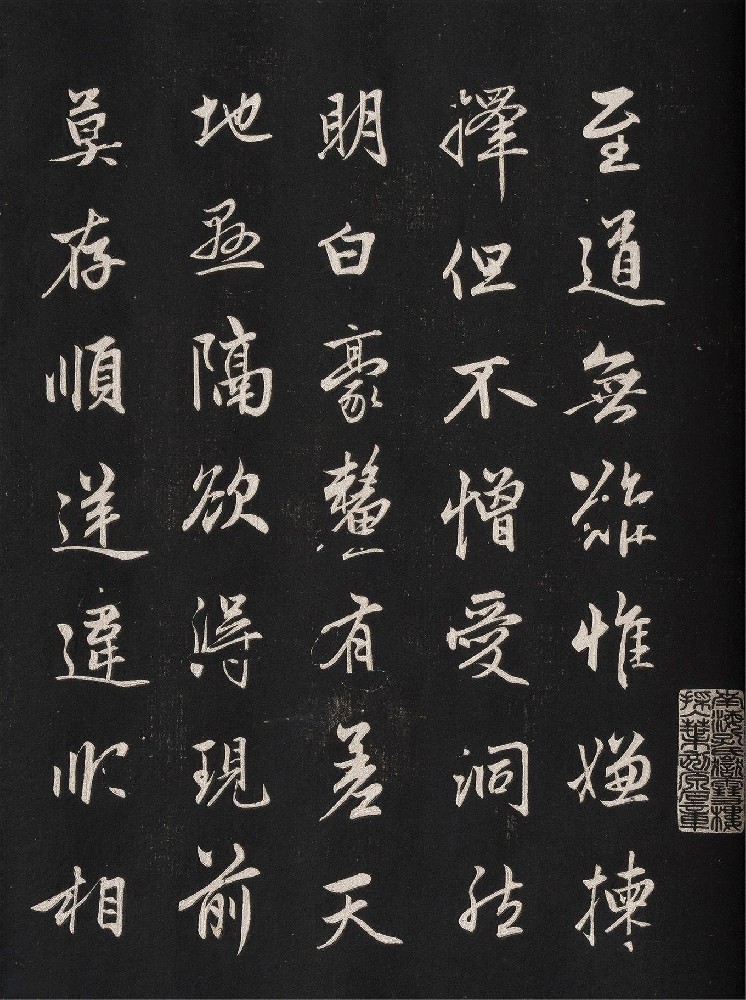 至道無難惟嫌揀
擇但不憎愛洞然
明白豪釐有差天
地懸隔欲得現前
莫存順逆違順相